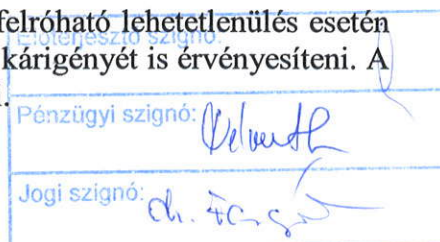 felróható lehetetlenülés esetén
Előterjesztő szignó:
kárigényét is érvényesíteni. A
Pénzügyi szignó:
Jogi szignó: